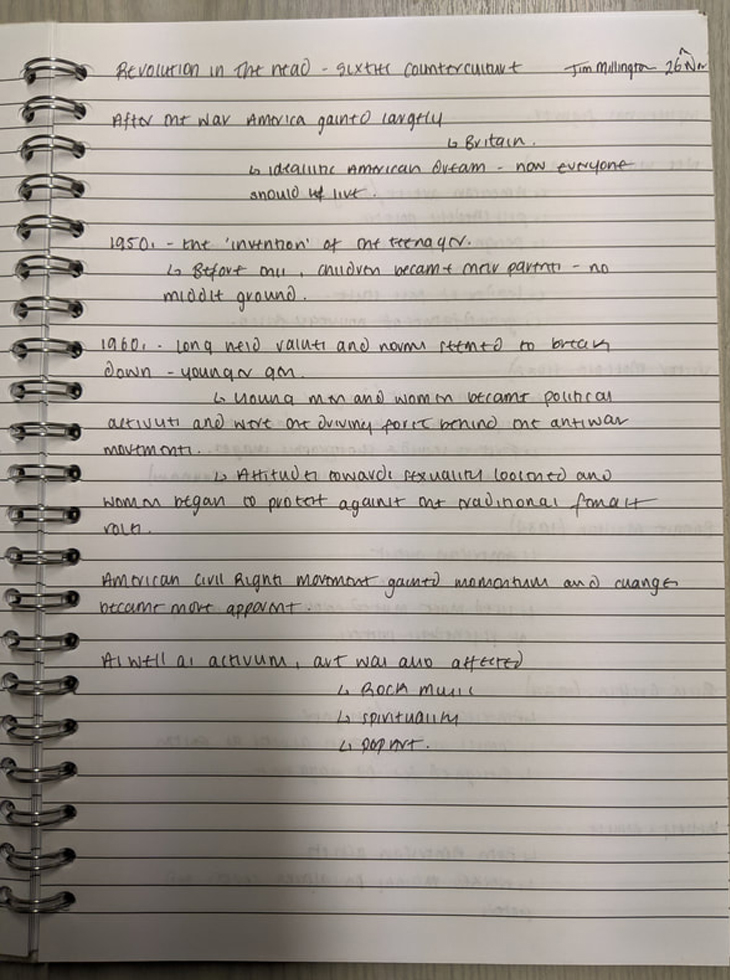 Revolution in the head - sixties counterculture Jim Millington 26
After the war America gained largely
↳ Britain.
↳ Idealistic American Dream - how everyone
should live.
1950s - the 'invention' of the teenager.
↳ Before this, children became their parents - no
middle ground.
1960s - long held values and norms seemed to break
down - younger gen.
↳ young men and women became political
activists and were the driving force behind the antiwar
movements.
↳ Attitudes towards sexuality loosened and
women began to protest against the traditional female
roles.
American Civil Rights movement gained momentum and changes
became more apparent.
As well as activism, art was also affected
↳ Rock music
↳ spirituality
↳ pop art.